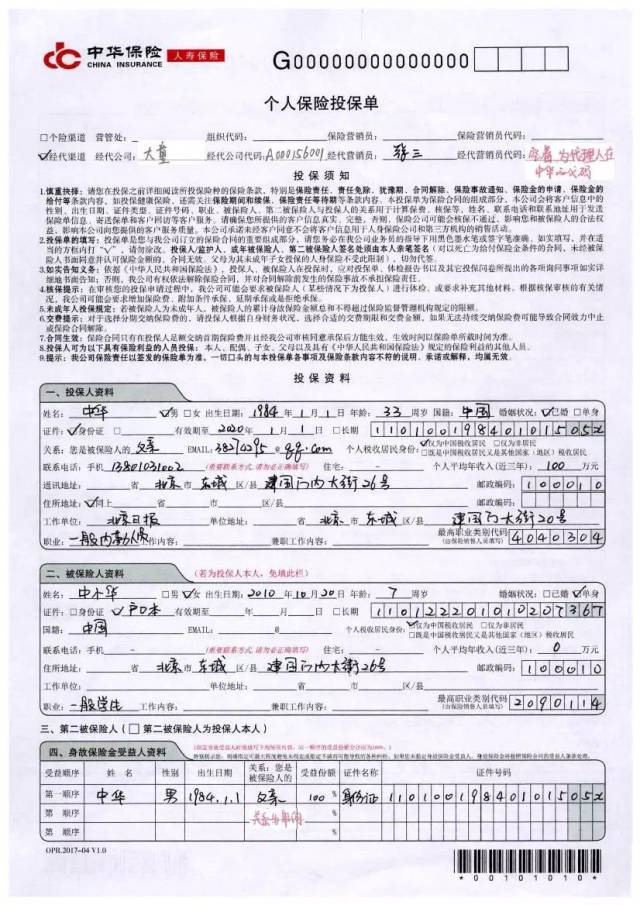 中华保险 人寿保险
CHINA INSURANCE
G00000000000000
个人保险投保单
□个险渠道 营管处: 组织代码: 保险营销员: 保险营销员代码:
☑经代渠道 经代公司: 大童 经代公司代码: A000156001 经代保险营销员: 张三 应为代理人在
中华的代码
投保须知
1.慎重抉择:请您在投保之前详细阅读所投保险种的保险条款,特别是保险责任、责任免除、犹豫期、合同解除、保险事故通知、保险金的申请、保险金的
给付等条款内容,如投保健康保险,还需关注保险期间和续保、保险责任等待期等条款内容。本投保单为保险合同的组成部分。本公司会将客户信息中的
性别、出生日期、证件类型、证件号码、职业、被保险人、第二被保险人与投保人的关系用于计算保费、核保等,姓名、联系电话和联系地址用于发送
保单信息、寄送保单和客户回访等客户服务。请确保您所提供的客户信息真实、完整,否则,保险公司可能会核保不通过,影响您和被保险人的合法权
益,影响本公司向您提供的客户服务质量。本公司承诺未经客户同意不会将客户信息用于人身保险公司和第三方机构的销售活动。
2.投保单的填写:投保单是您与我公司订立的保险合同的重要组成部分,请您务必在我公司业务员的指导下用黑色墨水笔或签字笔准确、如实填写,并在适
当的方框内打“√”,请勿涂改。投保人/监护人、成年被保险人、第二被保险人签名处须由本人亲笔签名(对以死亡为给付保险金条件的合同,未经被保
险人书面同意并认可保险金额的,合同无效。父母为其未成年子女投保的人身保险不受此限制),切勿代签。
3.如实告知义务:依据《中华人民共和国保险法》,投保人、被保险人在投保时,应对投保单、体检报告书以及其它投保问卷所提出的各项询问事项如实详
细地书面告知;否则,我公司有权依法解除保险合同,并对合同解除前发生的保险事故不承担保险责任。
4.核保提示:在审核您的投保申请过程中,我公司可能会要求被保险人(某些情况下为投保人)进行体检,或要求补充其他材料。根据核保审核的有关情
况,我公司可能会要求增加保险费、附加条件承保、延期承保或是拒绝承保。
5.未成年人投保规定:若被保险人为未成年人,被保险人的累计身故保险金额总和不得超过保险监督管理机构规定的限额。
6.交费提示:对于选择分期交纳保险费的,请投保人根据自身财务状况,选择合适的交费期限和交费金额,如果无法持续交纳保险费可能导致合同效力中止
或保险合同解除。
7.合同生效:保险合同只有在投保人足额交纳首期保险费并且经我公司审核同意承保后方能生效,生效时间以保险单所载时间为准。
8.投保人可为以下具有保险利益的人员投保:本人、配偶、子女、父母以及具有《中华人民共和国保险法》规定的保险利益的其他人员。
9.提示:我公司保险责任以签发的保险单为准,一切口头的与本投保单各事项及保险条款内容不符的说明、承诺或解释,均属无效。
投保资料
一、投保人资料
姓名: 中华 ☑男 □女 出生日期: 1984 年 1 月 1 日 年龄: 33 周岁 国籍: 中国 婚姻状况: ☑已婚 □单身
证件: ☑身份证 □ 有效期至 2020 年 1 月 1 日 □长期 11010019840101505X
关系:您是被保险人的 父亲 EMAIL: 38274295@qq.com 个人税收居民身份: ☑仅为中国税收居民 □仅为非居民
□既是中国税收居民又是其他国家(地区)税收居民
联系电话:手机 13801031002 (重要联系方式,请勿必正确填写) 住宅: - 个人平均年收入(近三年): 100 万元
通讯地址: 省 北京 市 东城 区/县 建国门内大街26号 邮政编码: 100010
住所地址: ☑同上 省 市 区/县 邮政编码:
工作单位: 北京日报 单位地址: 省 北京 市 东城 区/县 建国门大街20号
职业: 一般内勤人员 工作内容: 兼职工作内容: 最高职业类别代码 4040304
(由保险销售人员填写)
二、被保险人资料 (若为投保人本人,免填此栏)
姓名: 中小华 □男 ☑女 出生日期: 2010 年 10 月 20 日 年龄: 7 周岁 婚姻状况: □已婚 ☑单身
证件: □身份证 ☑户口本 有效期至 - 年 - 月 - 日 □长期 110122201010207367
国籍: 中国 EMAIL: @ 个人税收居民身份: ☑仅为中国税收居民 □仅为非居民
□既是中国税收居民又是其他国家(地区)税收居民
联系电话:手机 - (重要联系方式,请勿必正确填写) 住宅: - 个人平均年收入(近三年): 0 万元
住所地址: 省 北京 市 东城 区/县 建国门内大街26号 邮政编码: 100010
工作单位: 单位地址: 省 市 区/县
职业: 一般学生 工作内容: 兼职工作内容: 最高职业类别代码 2090114
(由保险销售人员填写)
三、第二被保险人(□第二被保险人为投保人本人)
四、身故保险金受益人资料
受益顺序 姓名 性别 出生日期 关系:您是被保险人的 受益份额 证件名称 证件号码
第一顺序 中华 男 1984.1.1 父亲 100% 身份证 11010019840101505X
第 顺序 %
第 顺序 %
OPR.2017-04 V1.0
*00101010*